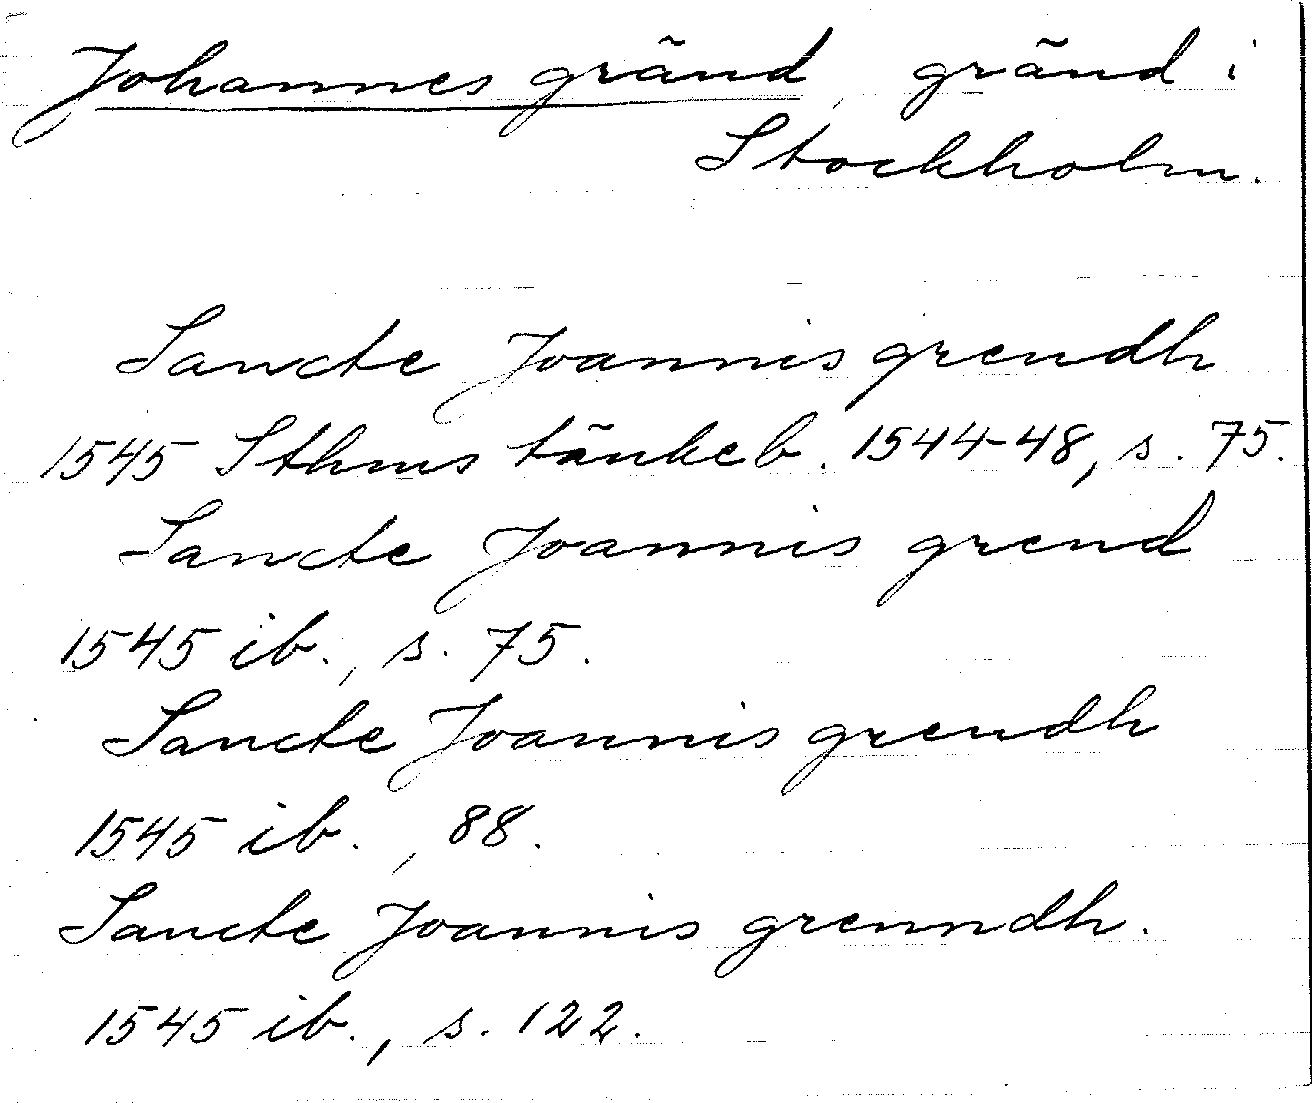 Johannes gränd, gränd i
Stockholm.
Sancte Joannis grendh
1545 Sthms tänkeb. 1544-48, s. 75.
Sancte Joannis grend
1545 ib., s. 75.
Sancte Joannis grendh
1545 ib., 88.
Sancte Joannis grenndh.
1545 ib., s. 122.